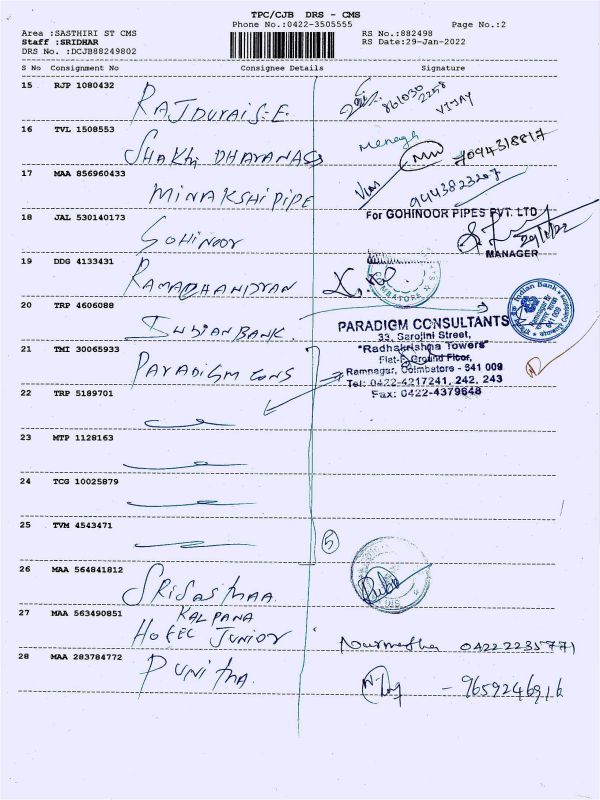 TPC/CJB DRS - CMS
Phone No.:0422-3505555
Page No.:2
Area :SASTHIRI ST CMS
RS No.:882498
Staff :SRIDHAR
RS Date:29-Jan-2022
DRS No. :DCJB88249802
S No Consignment No Consignee Details Signature
15 RJP 1080432
RAJDURAI S.E.
861030
2258
VIJAY
16 TVL 1508553
SHAKthi DHAYANASS
7094318817
17 MAA 856960433
MINAKSHI PIPE
9443823207
18 JAL 530140173
GOHINOOR
For GOHINOOR PIPES PVT. LTD
29/1/22
MANAGER
19 DDG 4133431
20 TRP 4606088
INDIAN BANK
Indian Bank
21 TMI 30065933
PARADIGM CONS
PARADIGM CONSULTANTS
33, Sarojini Street,
"Radhakrishna Towers"
Flat-F, Ground Floor,
Ramnagar, Coimbatore - 641 009
Tel: 0422-4217241, 242, 243
Fax: 0422-4379648
22 TRP 5189701
23 MTP 1128163
24 TCG 10025879
25 TVM 4543471
5
26 MAA 564841812
SRISASTHAA
27 MAA 563490851
KALPANA
HOTEL JUNIOR
Nurmatha 04222235771
28 MAA 283784772
PUNITHA.
- 9659246916